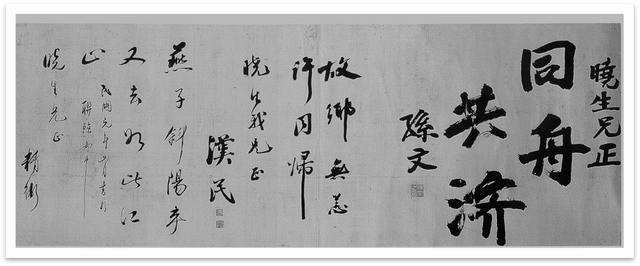 曉生兄正
同舟
共济
孫文
故鄉無恙
许同帰
晓生我兄正
漢民
燕子斜陽来
又去如此江
山
民國元年六月書於
晓生兄正
精衛